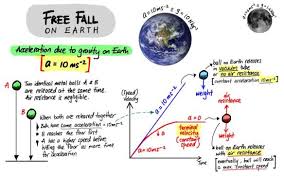 FREE FALL
ON EARTH
Acceleration due to gravity on Earth
a = 10 ms⁻²
Two identical metal balls A & B
are released at the same time.
Air resistance is negligible.
A
B
When both are released together
Both have same acceleration
A reaches the floor first
B has a higher speed before
hitting the floor as more time
for acceleration
(Speed)
velocity
a = 10 ms⁻²
a = 0
terminal
velocity
(constant speed)
a = 10 ms⁻²
Time
ball on Earth releases
in vacuum tube
no air resistance
[constant acceleration 10 ms⁻²]
weight
air
resistance
weight
ball on Earth releases
with air resistance
[eventually, ball will reach
a max constant speed]